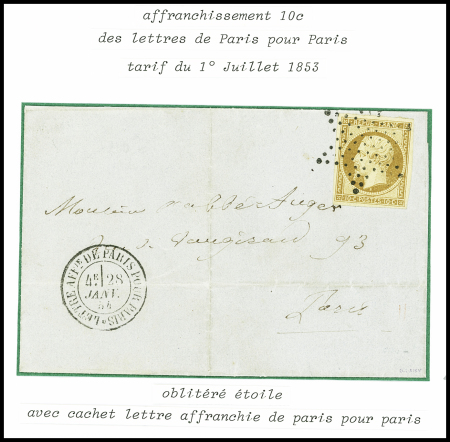 affranchissement 10c
des lettres de Paris pour Paris
tarif du 1° Juillet 1853
10·C·POSTES·10·C
Monsieur l'abbé Auger
r. de Vaugirard 93
Paris
LETTRE AFFie DE PARIS POUR PARIS
4E 28
JANV.
54
oblitéré étoile
avec cachet lettre affranchie de paris pour paris